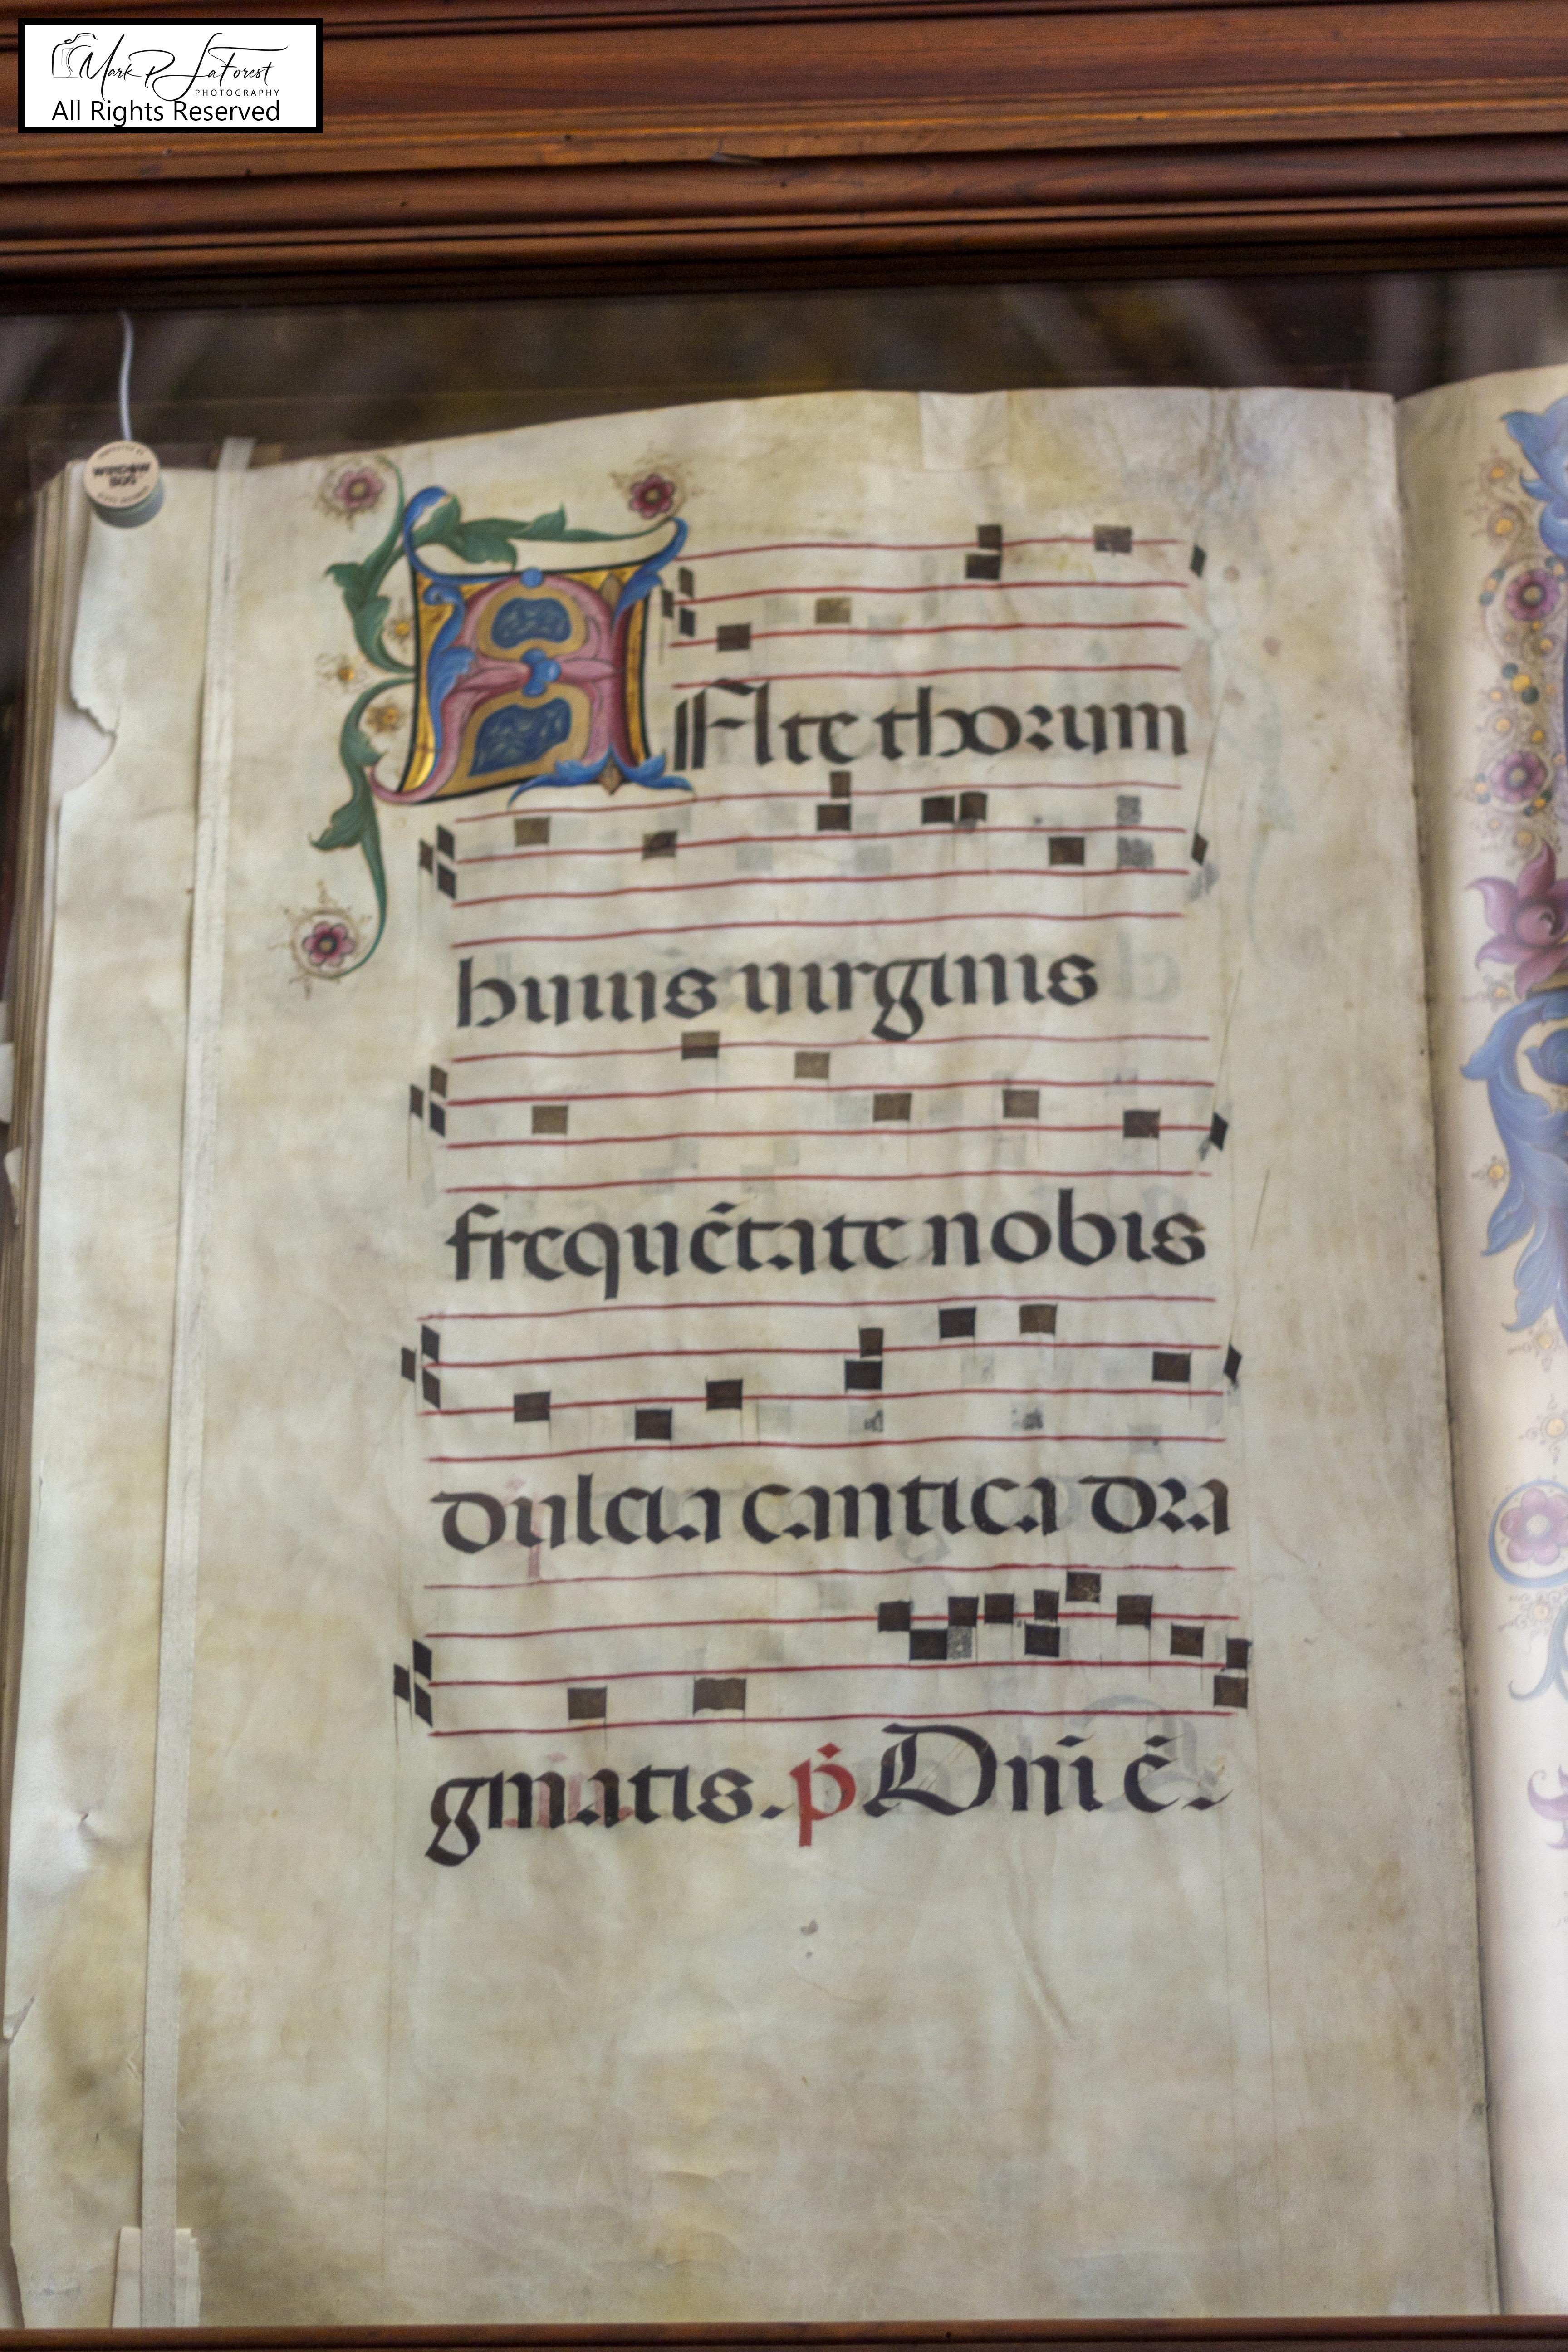 Mark P. LaForest
PHOTOGRAPHY
All Rights Reserved
WINDOW
BUG
ANte thorum
huius uirginis
frequētate nobis
dulcia cantica dra
gmatis. p̄ Dnī ē.